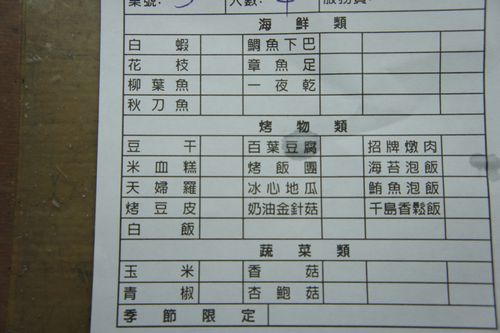 桌號: 人數:
海鮮類
白蝦 鯛魚下巴
花枝 章魚足
柳葉魚 一夜乾
秋刀魚
烤物類
豆干 百葉豆腐 招牌燉肉
米血糕 烤飯團 海苔泡飯
天婦羅 冰心地瓜 鮪魚泡飯
烤豆皮 奶油金針菇 千島香鬆飯
白飯
蔬菜類
玉米 香菇
青椒 杏鮑菇
季節限定